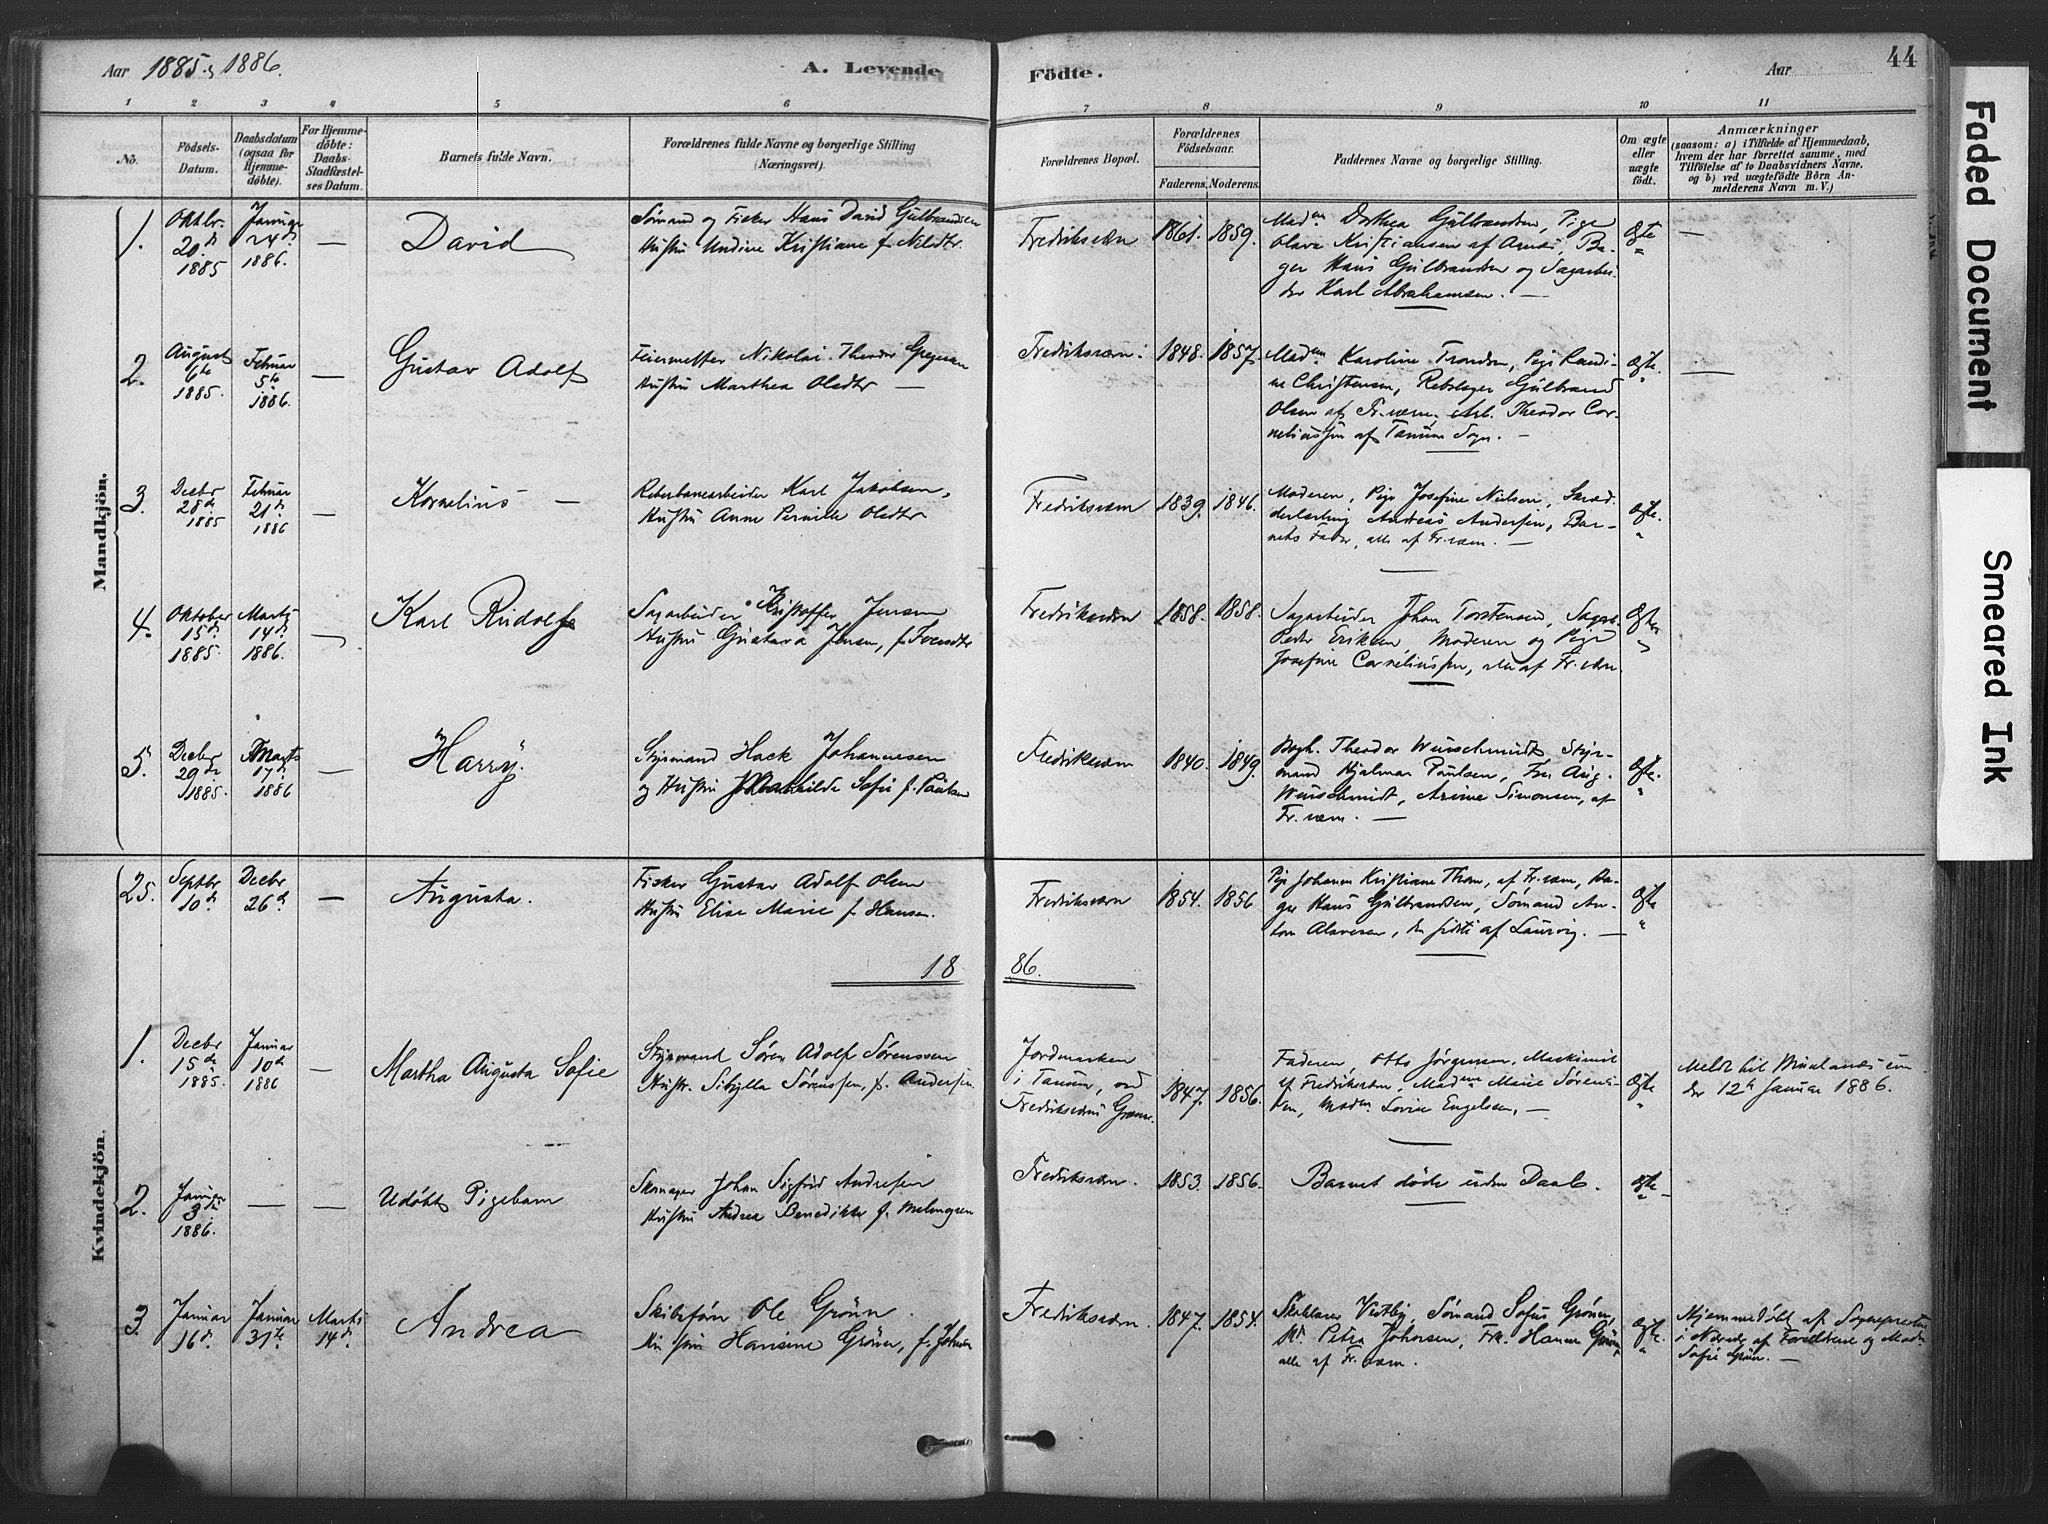 Aar 1885 & 1886.
A. Levende Födte.
Aar
44
1 2 3 4 5 6 7 8 9 10 11
No.
Födsels-Datum.
Daabsdatum (ogsaa for Hjemmedöbte).
For Hjemmedöbte: Daabs-Stadfæstelses Datum.
Barnets fulde Navn.
Forældrenes fulde Navne og borgerlige Stilling (Næringsvei).
Forældrenes Bopæl.
Forældrenes Födselsaar.
Faderens. Moderens.
Faddernes Navne og borgerlige Stilling.
Om ægte eller uægte födt.
Anmærkninger
(saasom: a) i Tilfælde af Hjemmedaab, hvem der har forrettet samme, med Tilföielse af to Daabsvidners Navne. og b) ved uægtefödte Börn Anmelderens Navn m. V.)
Mandkjön.
1.
Oktbr. 20de 1885
Januar 24de 1886.
—
David
Sömand og Fisker Hans David Gulbrandsen
Hustru Undine Kristiane f. Nilsdtr.
Fredriksværn
1861. 1859.
Madm Dorthea Gulbrandsen, Pige
Olava Kristiansen af Ba-
ger Hans Gulbrandsen og Sagarbei-
der Karl Abrahamsen. —
Ægte
"
—
2.
August 6te 1885.
Februar 5te 1886.
—
Gustav Adolf
Feiermester Nikolai Theodor Gregersen
Hustru Marthea Olsdtr —
Fredriksværn.
1848. 1857.
Madm Karoline Trondsen, Pige Randi-
ne Christensen, Rebslager Gulbrand
Olsen af Fr.værn. Arb. Theodor Cor-
neliussen af Tanum Sogn. —
Ægte.
"
—
3.
Decbr 28de 1885
Februar 21de 1886
—
Kornelius —
Reberbanearbeider Karl Jakobsen,
Hustru Anne Pernille Olsdtr
Fredriksværn
1839. 1846.
Moderen, Pige Josefine Nielsen, Skræd-
derlærling Andreas Andersen, Bar-
nets Fader, alle af Fr.værn. —
Ægte.
"
4.
Oktober 15de 1885
Marts 14de 1886.
—
Karl Rudolf
Sagarbeider Kristoffer Jensen
Hustru Gustava Jensen, f. Svendsdtr
Fredriksværn
1858. 1858.
Sagarbeider Johan Torstensen, Sagarb.
Peder Eriksen Moderen og Pige
Josefine Corneliussen, alle af Fr.værn.
Ægte
"
5.
Decbr 29de 1885.
Marts 17de 1886
—
Harry.
Styrmand Hack Johannesen
og Hustru Mathilde Sofie f. Paulsen
Fredriksværn
1840. 1849.
Bogh. Theodor Wurschmidt, Styr-
mand Hjalmar Paulsen, Fru Aug.
Wurschmidt, Simonsen, af
Fr.værn. —
Ægte.
"
Kvindekjön.
25.
Septbr 10de
Decbr 26de
—
Augusta.
Fisker Gustav Adolf Olsen
Hustru Elise Marie f. Hansen.
Fredriksværn
1854. 1856
Pige Johanne Kristiane Thom, af Fr.værn, Ba-
ger Hans Gulbrandsen, Sömand An-
ton Olavesen, de sidste af Laurvig. —
Ægte
"
18 86.
1.
Decbr 15de 1885.
Januar 10de 1886
—
Martha Augusta Sofie
Styrmand Sören Adolf Sörenssen
Hustr. Sibylla Sörenssen, f. Andersen
Jordmarken
i Tanum, ved
Fredriksværns Grændse.
1847. 1856.
Faderen, Otto Jörgensen, Maskinist
af Fredriksværn, Madme Marie Sörens-
sen, Madm. Lovise Engelsen. —
Ægte
"
Meldt til
den 12te Januar 1886.
2.
Januar 3de 1886.
— —
Udöbt Pigebarn
Skomager Johan Sigfrid Andresen
Hustru Andrea Benedikte f. Malmgren
Fredriksværn.
1853. 1856.
Barnet döde uden Daab.
Ægte
"
3.
Januar 16de
Januar 31te
Marts 14de
Andrea
Skibsförer Ole Grönn.
Hustru Hansine Grönn, f. Johnsen
Fredriksværn.
1847. 1854.
Vestby, Sömand Sofus Grönn,
Petra Johnsen, Frk. Hanna Grönn,
alle af Fr.værn.
Ægte.
"
Hjemmedöbt af Sognepresten
i Nærværelse af Forældrene og Madm
Sofie Grönn. —
Faded Document
Smeared Ink